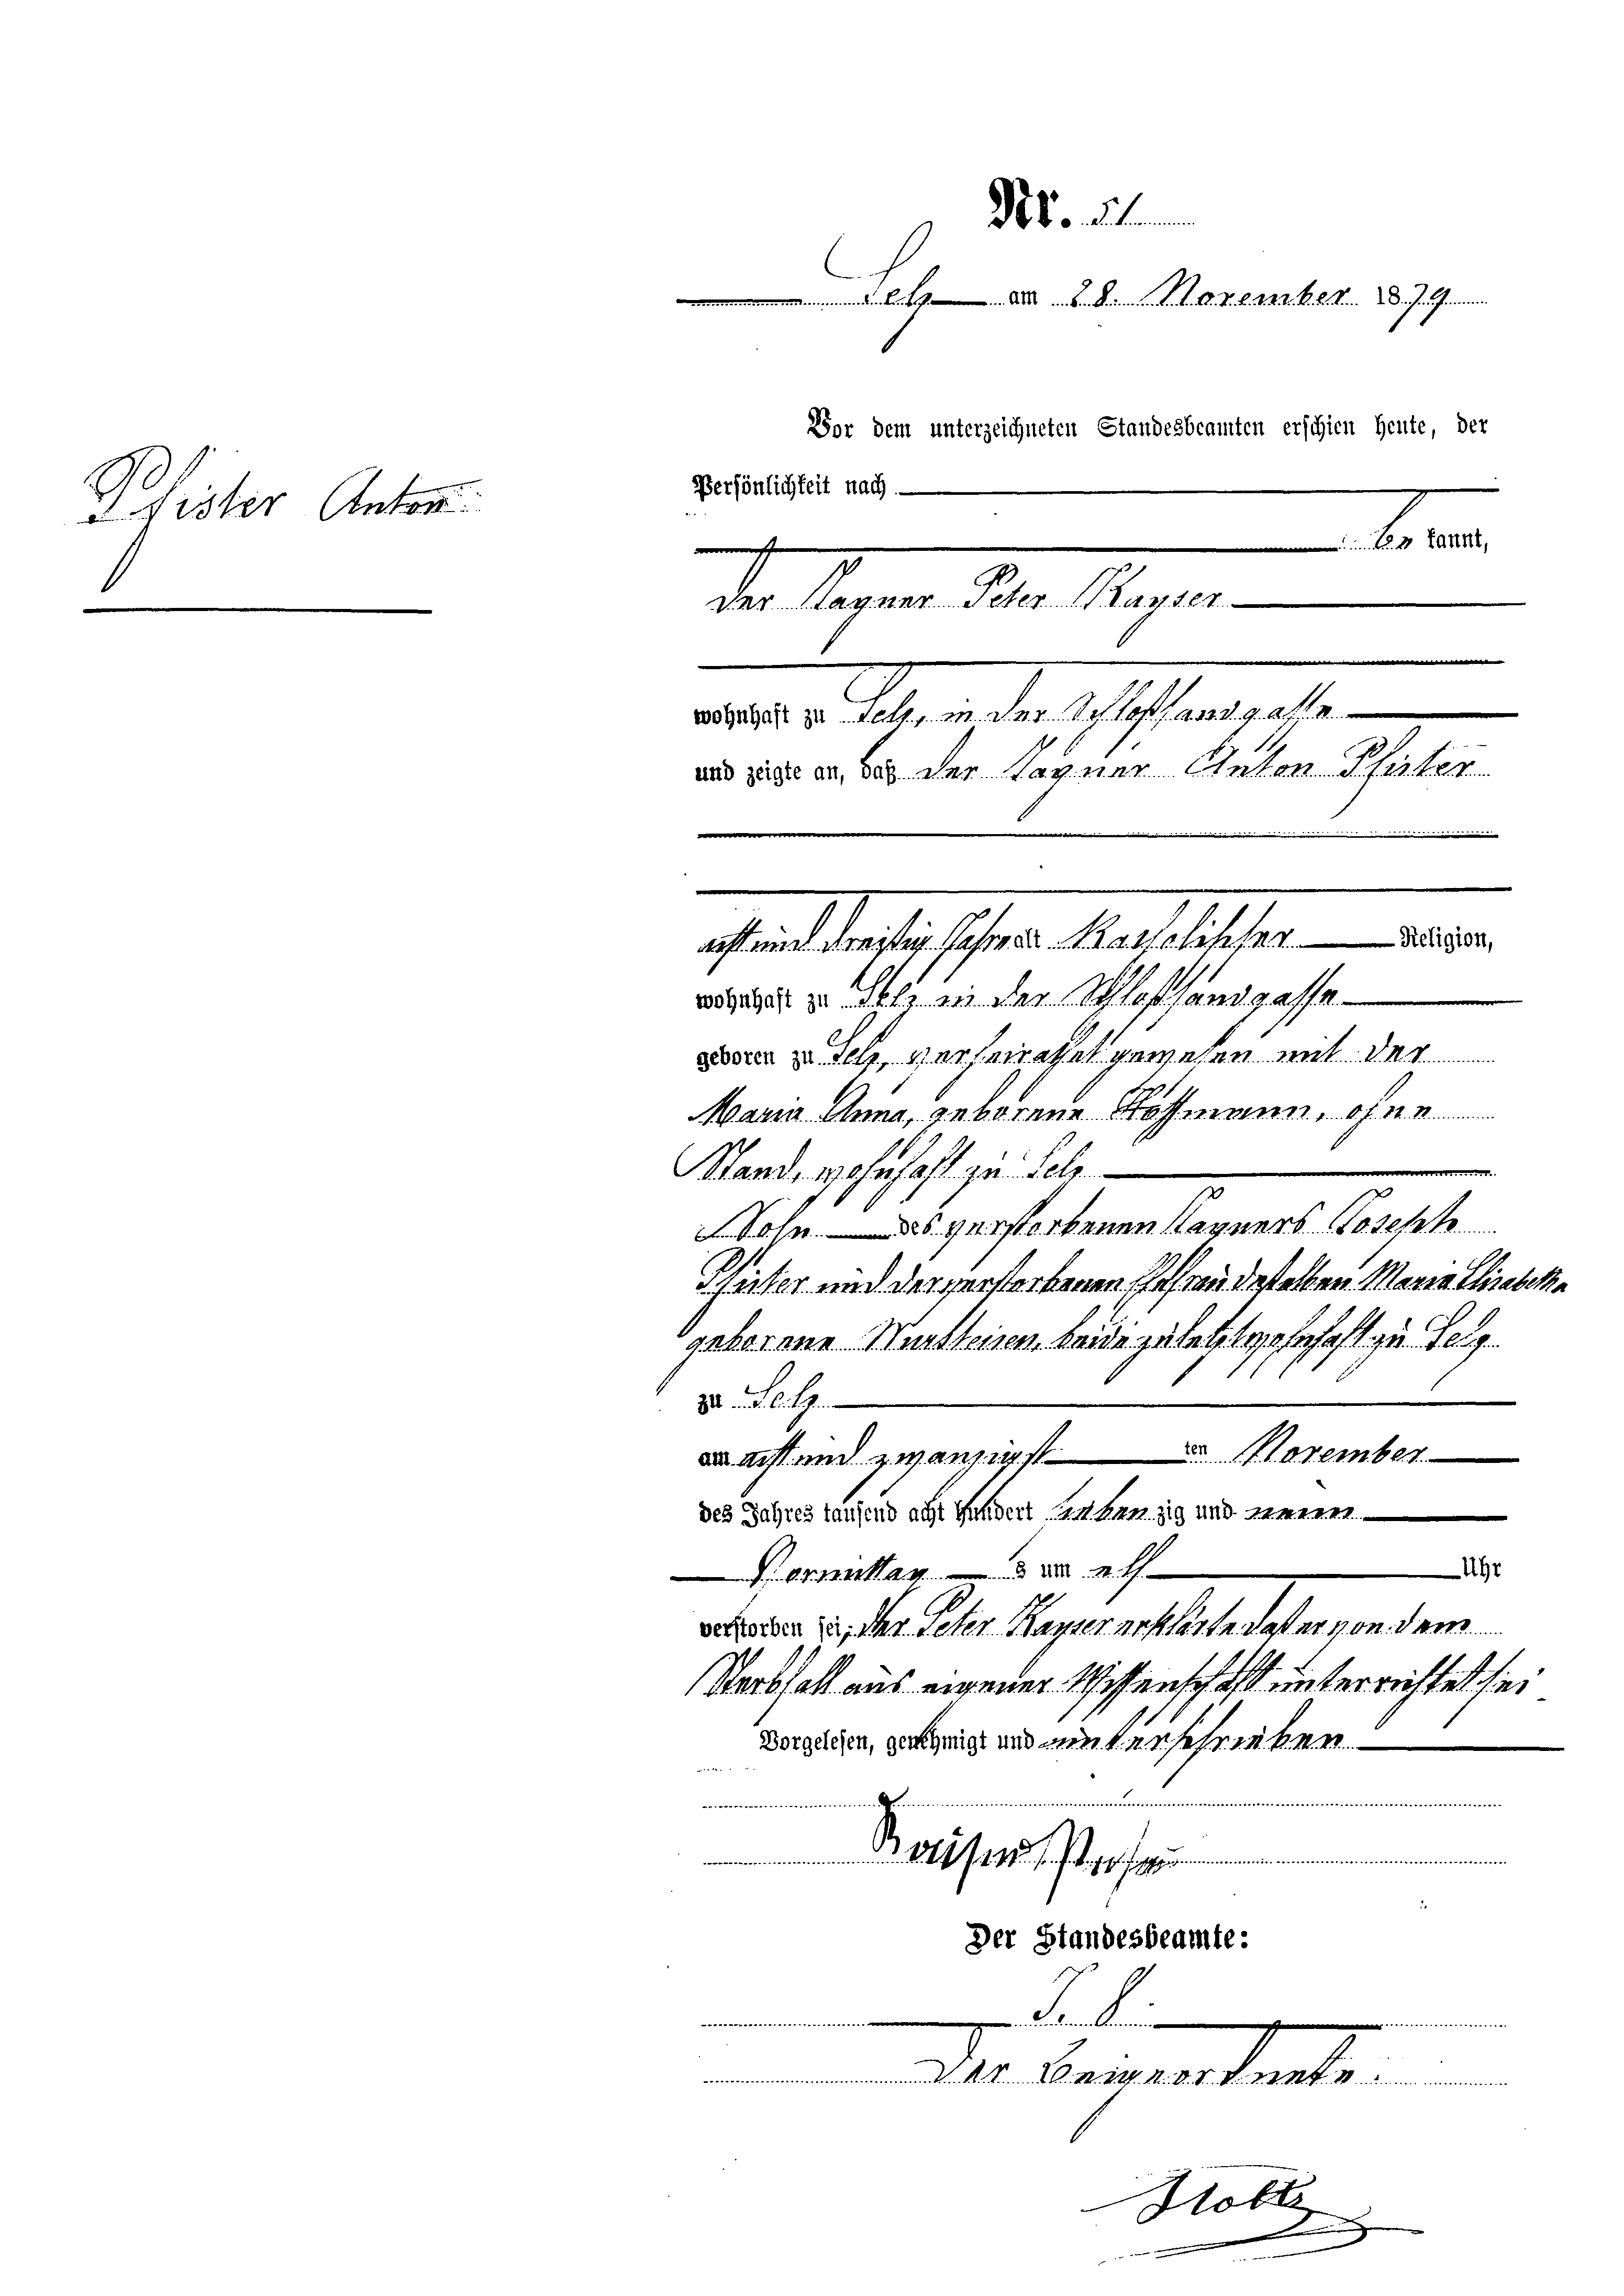 Nr. 51
Selz am 28. November 1879
Vor dem unterzeichneten Standesbeamten erschien heute, der
Pfister Anton
Persönlichkeit nach
be kannt,
der Tagner Peter Kayser
wohnhaft zu Selz, in der Schloßsandgasse
und zeigte an, daß der Tagner Anton Pfister
acht und dreißig Jahre alt Katholischer Religion,
wohnhaft zu Selz in der Schloßsandgasse
geboren zu Selz, verheirathet gewesen mit der
Maria Anna, geborene Hoffmann, ohne
Stand, wohnhaft zu Selz
Sohn des verstorbenen Tagners Joseph
Pfister und der verstorbenen Ehefrau desselben Maria Elisabetha
geborene Wurtheisen, beide zuletzt wohnhaft zu Selz
zu Selz
am acht und zwanzigst ten November
des Jahres tausend acht hundert sieben zig und neun
Vormittag s um elf Uhr
verstorben sei; der Peter Kayser erklärte daß er von dem
Sterbfall aus eigener Wissenschaft unterrichtet sei
Vorgelesen, genehmigt und unterschrieben
Kaiser Peter
Der Standesbeamte:
Der Beigeordnete.
Stoltz